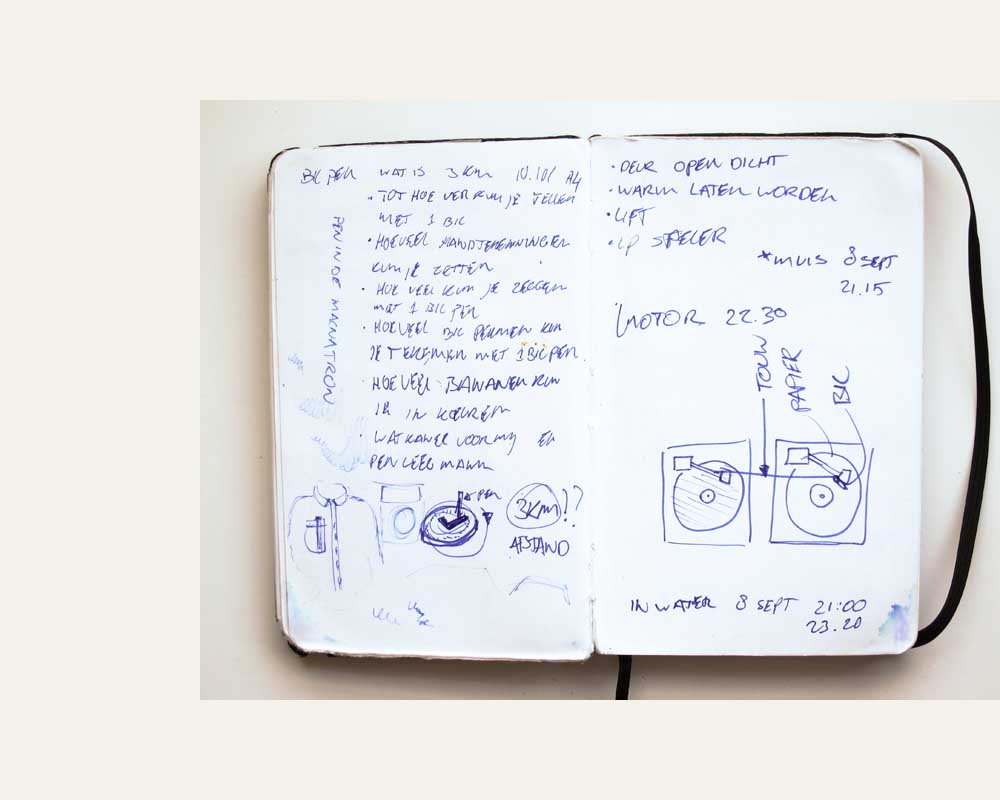 BIC PEN WAT IS 3 Km A4
• TOT HOE VER KUN JE TELLEN
MET 1 BIC
• HOEVEEL HANDTEKENINGEN
KUN JE ZETTEN
• HOE VEEL KUN JE ZEGGEN
MET 1 BIC PEN
• HOEVEEL BIC PENNEN KUN
JE TEKENEN MET 1 BIC PEN.
HOEVEEL BANANEN KUN
JE IN KLEUREN
• WAT KAN ER VOOR MIJ EEN
PEN LEEG MAKEN
PEN IN DE MAGNATRON
PEN
3Km!??
AFSTAND
• DEUR OPEN DICHT
• WARM LATEN WORDEN
• LIFT
• LP SPELER
*MUIS 8 SEPT
21.15
MOTOR 22.30
TOUW
PAPIER
BIC
IN WATER 8 SEPT 21:00
23.20